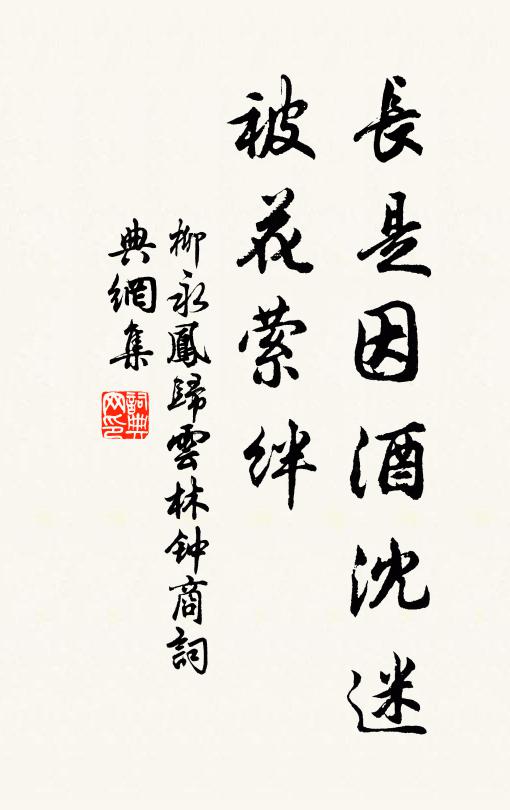 長是因酒沈迷
被花縈絆
柳永鳳歸雲林钟商詞
典網集
詞典网印